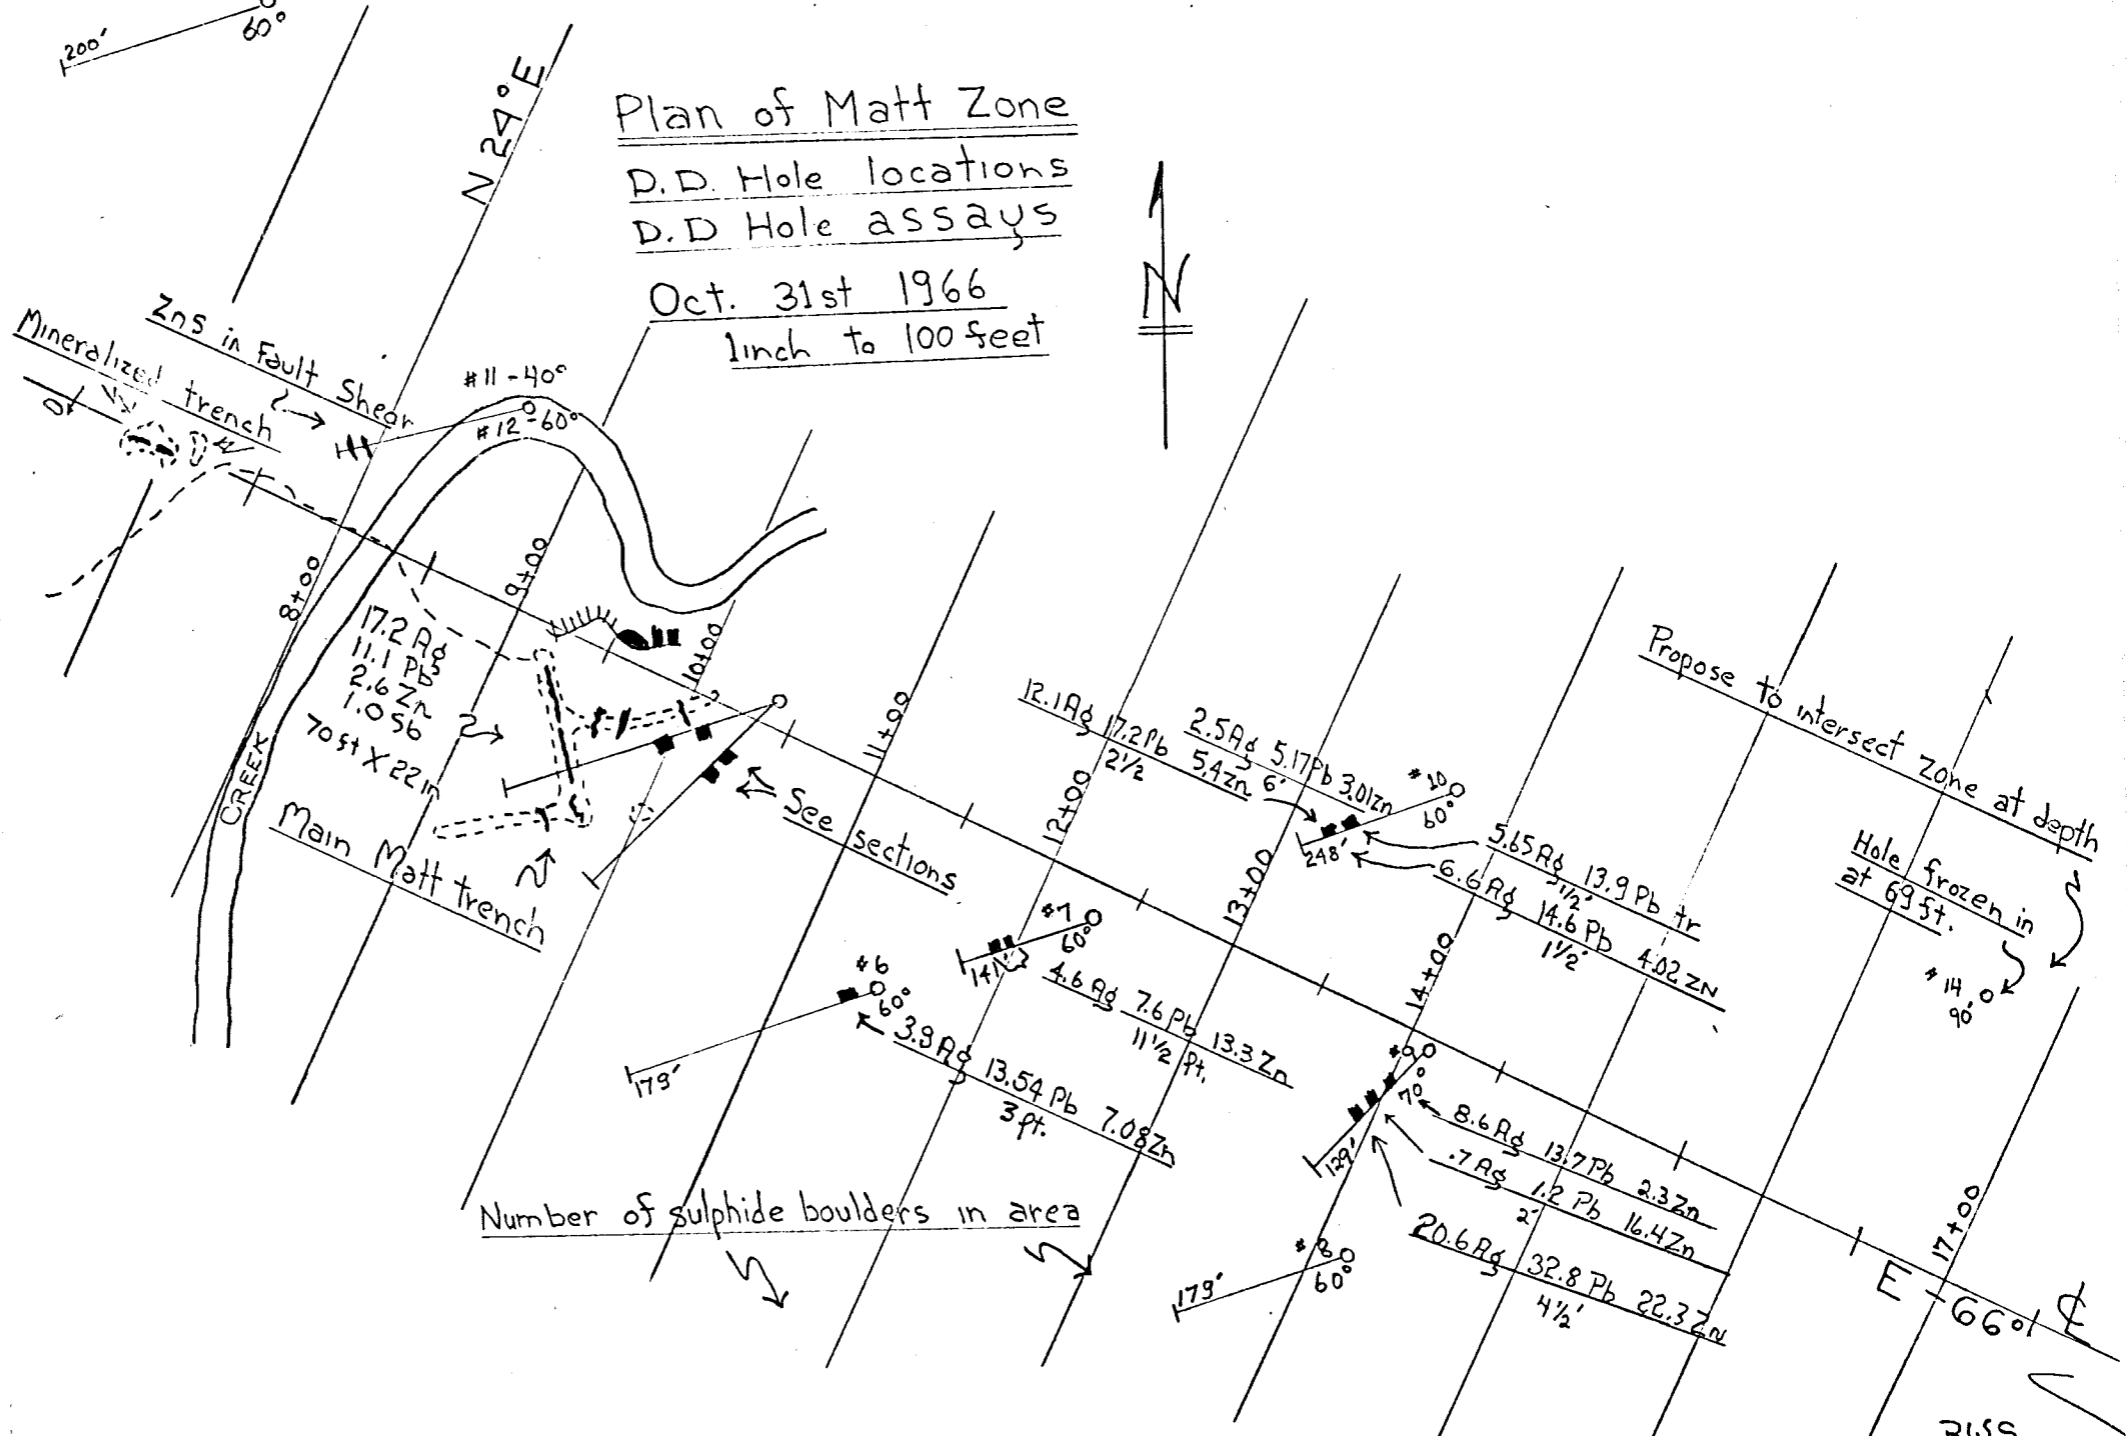 200'
60°
N 24° E
Plan of Matt Zone
D.D. Hole locations
D.D Hole assays
Oct. 31st 1966
1inch to 100 feet
N
ZnS in Fault Shear
Mineralized trench
#11-40°
#12-60°
8+00
9+00
10+00
11+00
12+00
13+00
14+00
17+00
17.2 Ag
11.1 Pb
2.6 Zn
1.0 Sb
70 ft X 22 in
CREEK
Main Matt trench
See sections
12.1 Ag 17.2 Pb 5.4 Zn
2½
2.5 Ag 5.17 Pb 3.01 Zn
6'
#10
60°
248'
5.65 Ag 13.9 Pb tr
6.6 Ag 14.6 Pb 4.02 ZN
1½'
Propose to intersect zone at depth
Hole frozen in
at 69 ft.
#14
90°
#7
60°
141'
4.6 Ag 7.6 Pb 13.3 Zn
11½ ft.
#6
60°
179'
3.9 Ag 13.54 Pb 7.08 Zn
3 ft.
#9
70°
129'
8.6 Ag 13.7 Pb 2.3 Zn
.7 Ag 1.2 Pb 16.4 Zn
2'
20.6 Ag 32.8 Pb 22.3 Zn
4½'
#8
60°
179'
Number of sulphide boulders in area
E - 66°
℄